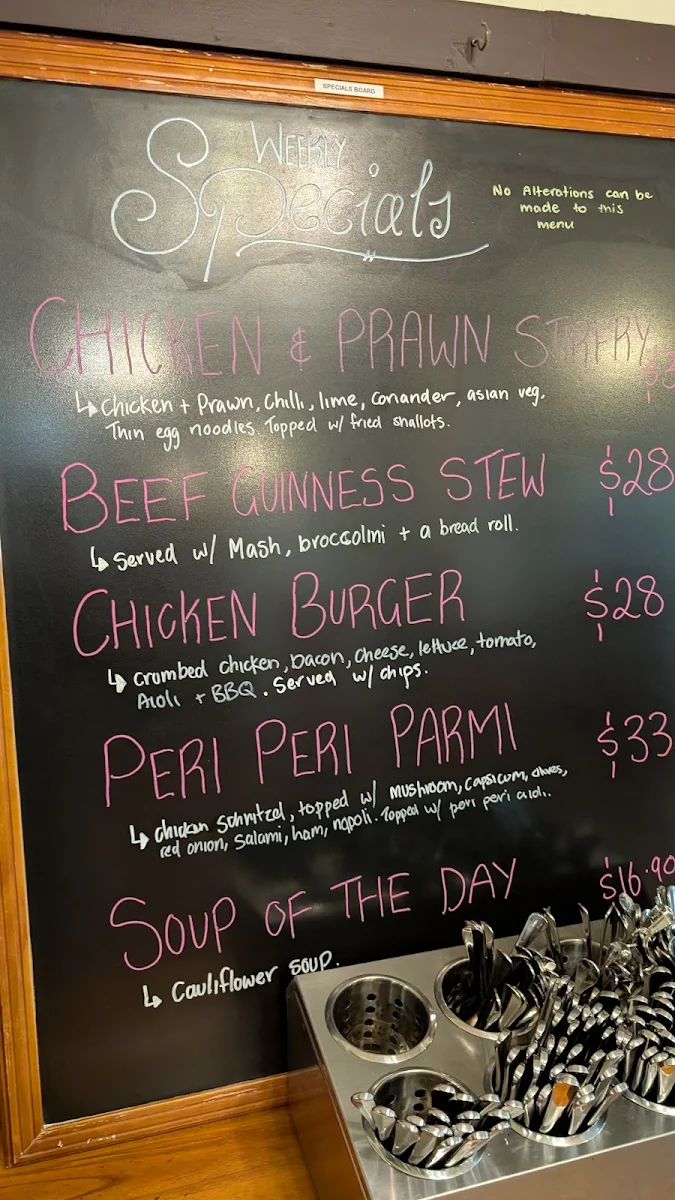 SPECIALS BOARD
WEEKLY
Specials
No Alterations can be
made to this
menu
CHICKEN & PRAWN STIRFRY
↳ Chicken + Prawn, Chilli, lime, coriander, asian veg.
Thin egg noodles. Topped w/ fried shallots.
BEEF GUINNESS STEW $28
↳ Served w/ Mash, broccolini + a bread roll.
CHICKEN BURGER $28
↳ Crumbed chicken, bacon, cheese, lettuce, tomato,
Aioli + BBQ. Served w/ chips.
PERI PERI PARMI $33
↳ chicken Schnitzel, topped w/ mushroom, capsicum, olives,
red onion, salami, ham, napoli. Topped w/ peri peri aioli.
SOUP OF THE DAY $16.90
↳ Cauliflower soup.